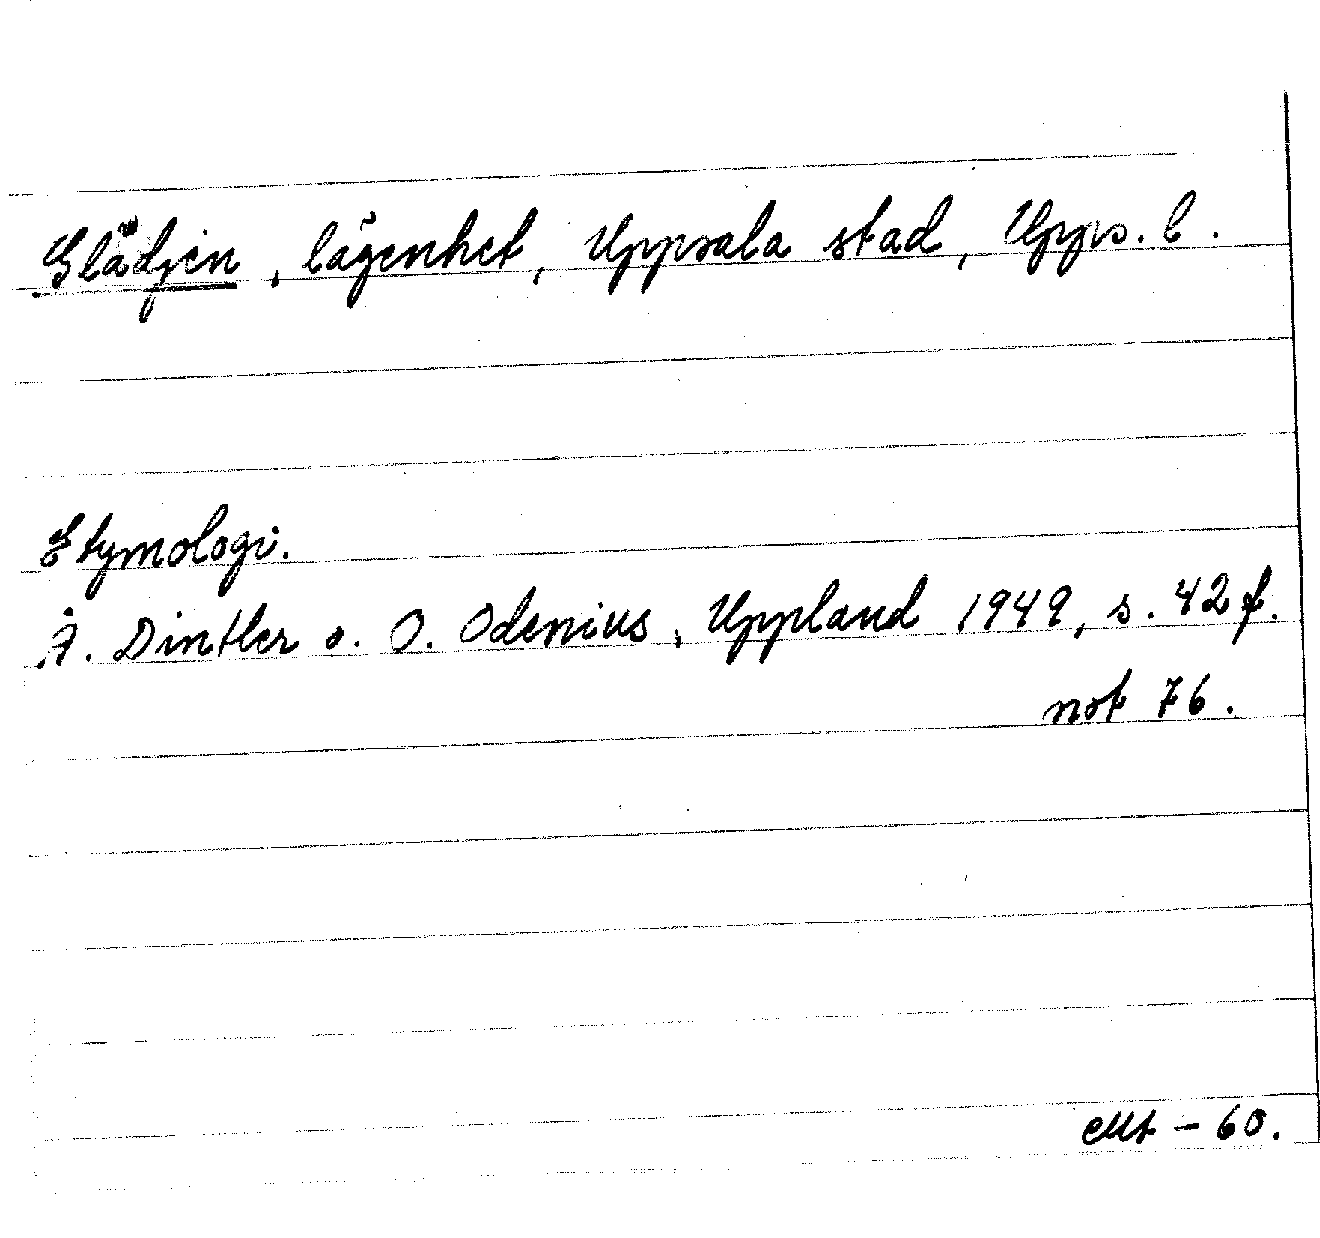 Glädjen, lägenhet, Uppsala stad, Upps. l.
Etymologi.
Å. Dintler o. O. Odenius, Uppland 1949, s. 42 f.
not 76.
- 60.